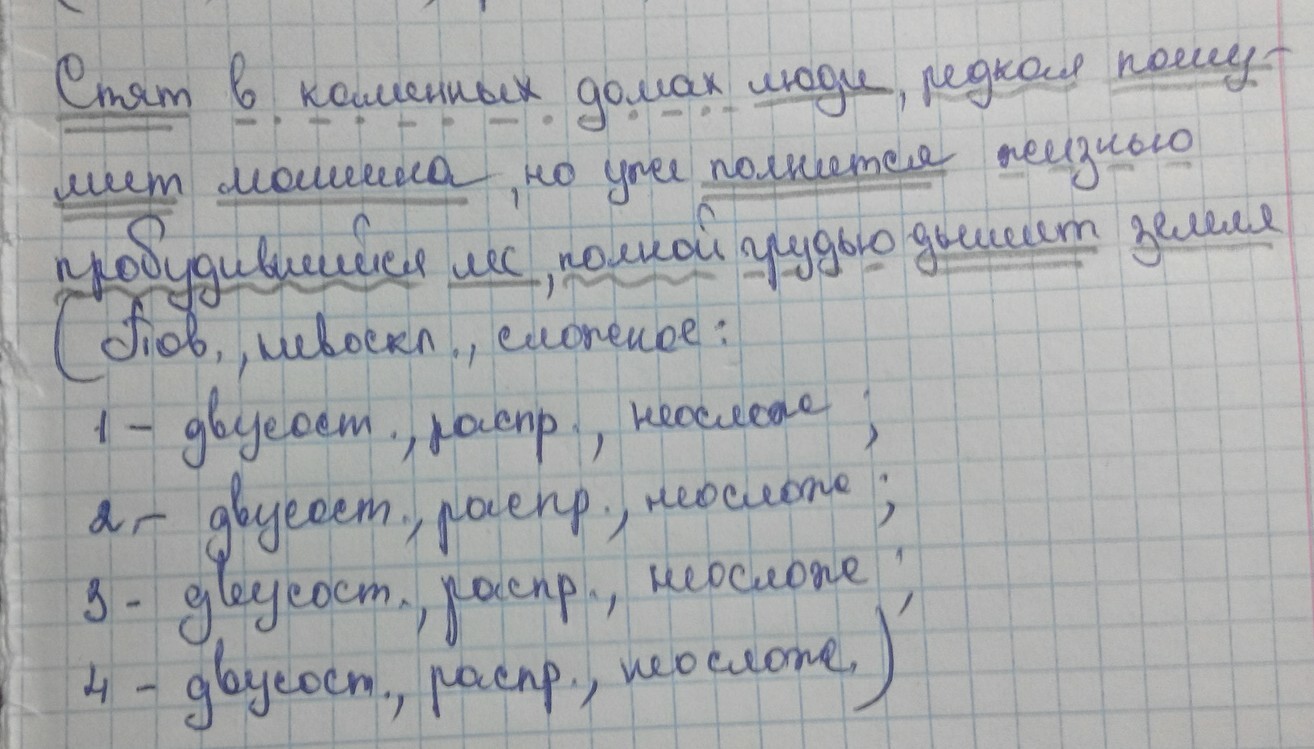 Спят в каменных домах люди, редкая пошу-
мит машина, но уже полнится жизнью
пробудившийся лес, полной грудью дышит земля
(Пов., невоскл., сложное:
1 - двусост., распр., неослож;
2 - двусост., распр., неослож;
3 - двусост., распр., неослож;
4 - двусост., распр., неослож.)